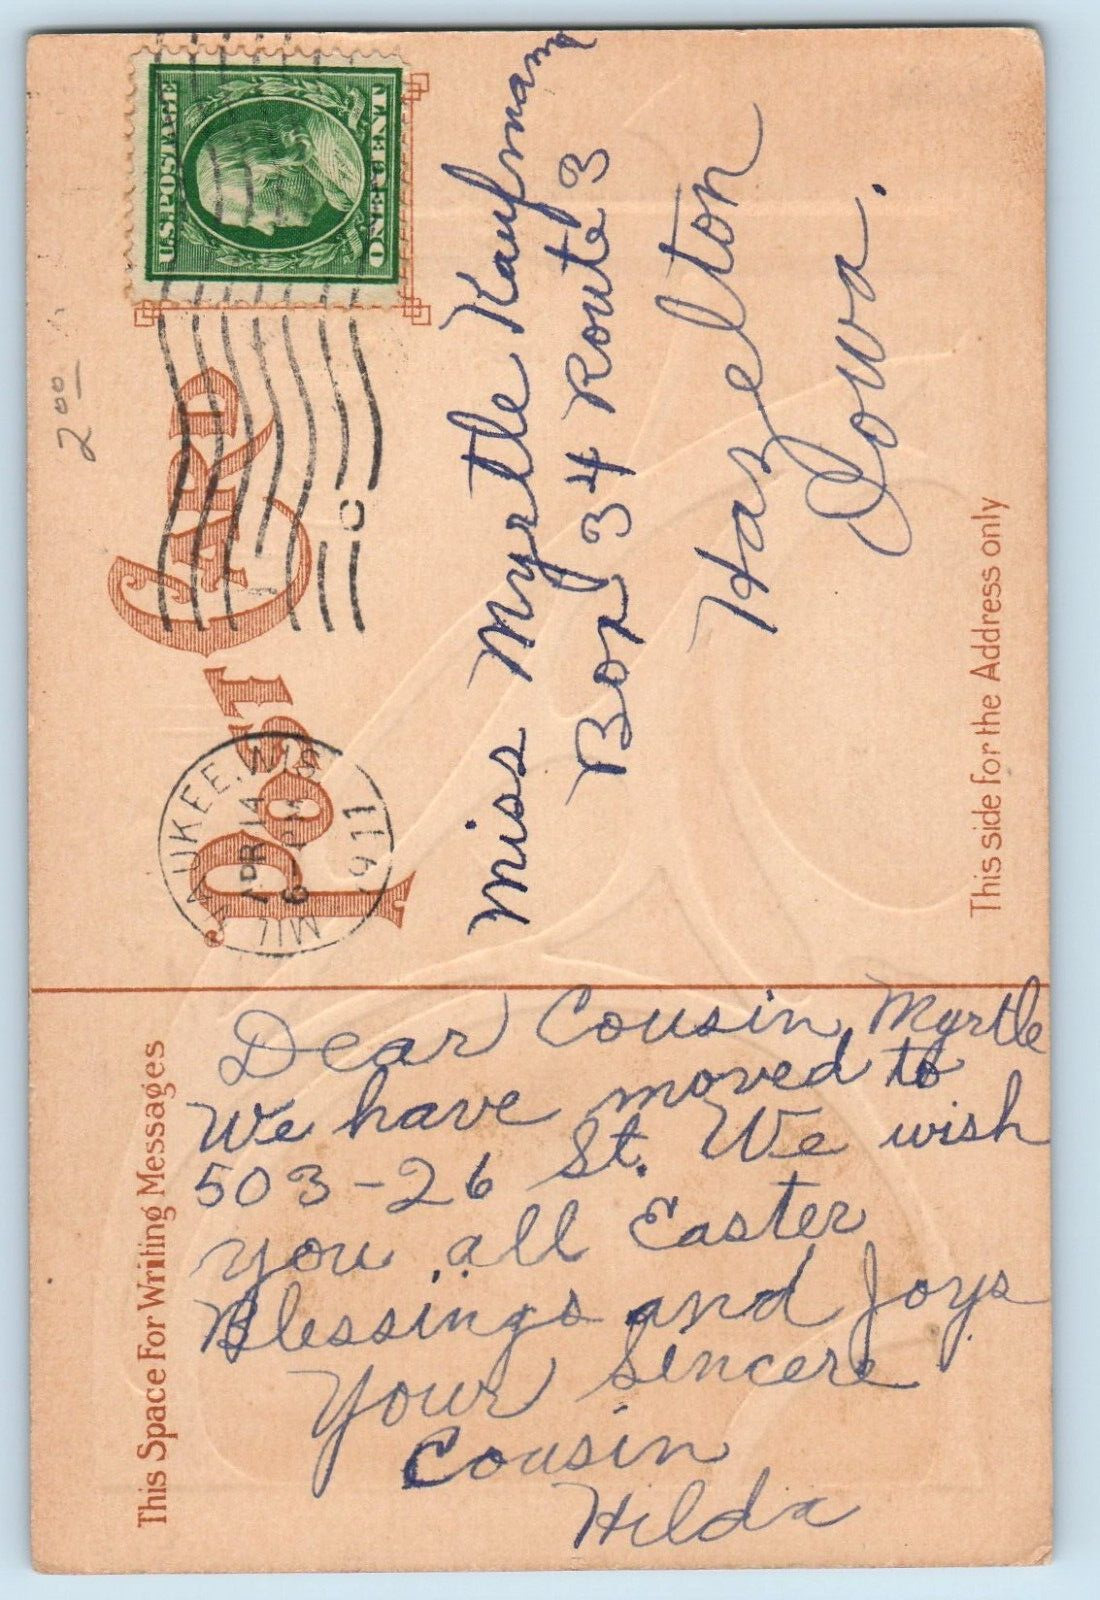 2 00
POST CARD
U.S. POSTAGE
ONE CENT
MILWAUKEE, WIS
APR 14
6 - PM
1911
C
Miss Myrtle Kaufmann
Box 34 Route 3
Hazelton
Iowa.
This side for the Address only
This Space For Writing Messages
Dear Cousin Myrtle
We have moved to
503-26 St. We wish
you all Easter
Blessings and Joys
Your Sincere
Cousin
Hilda